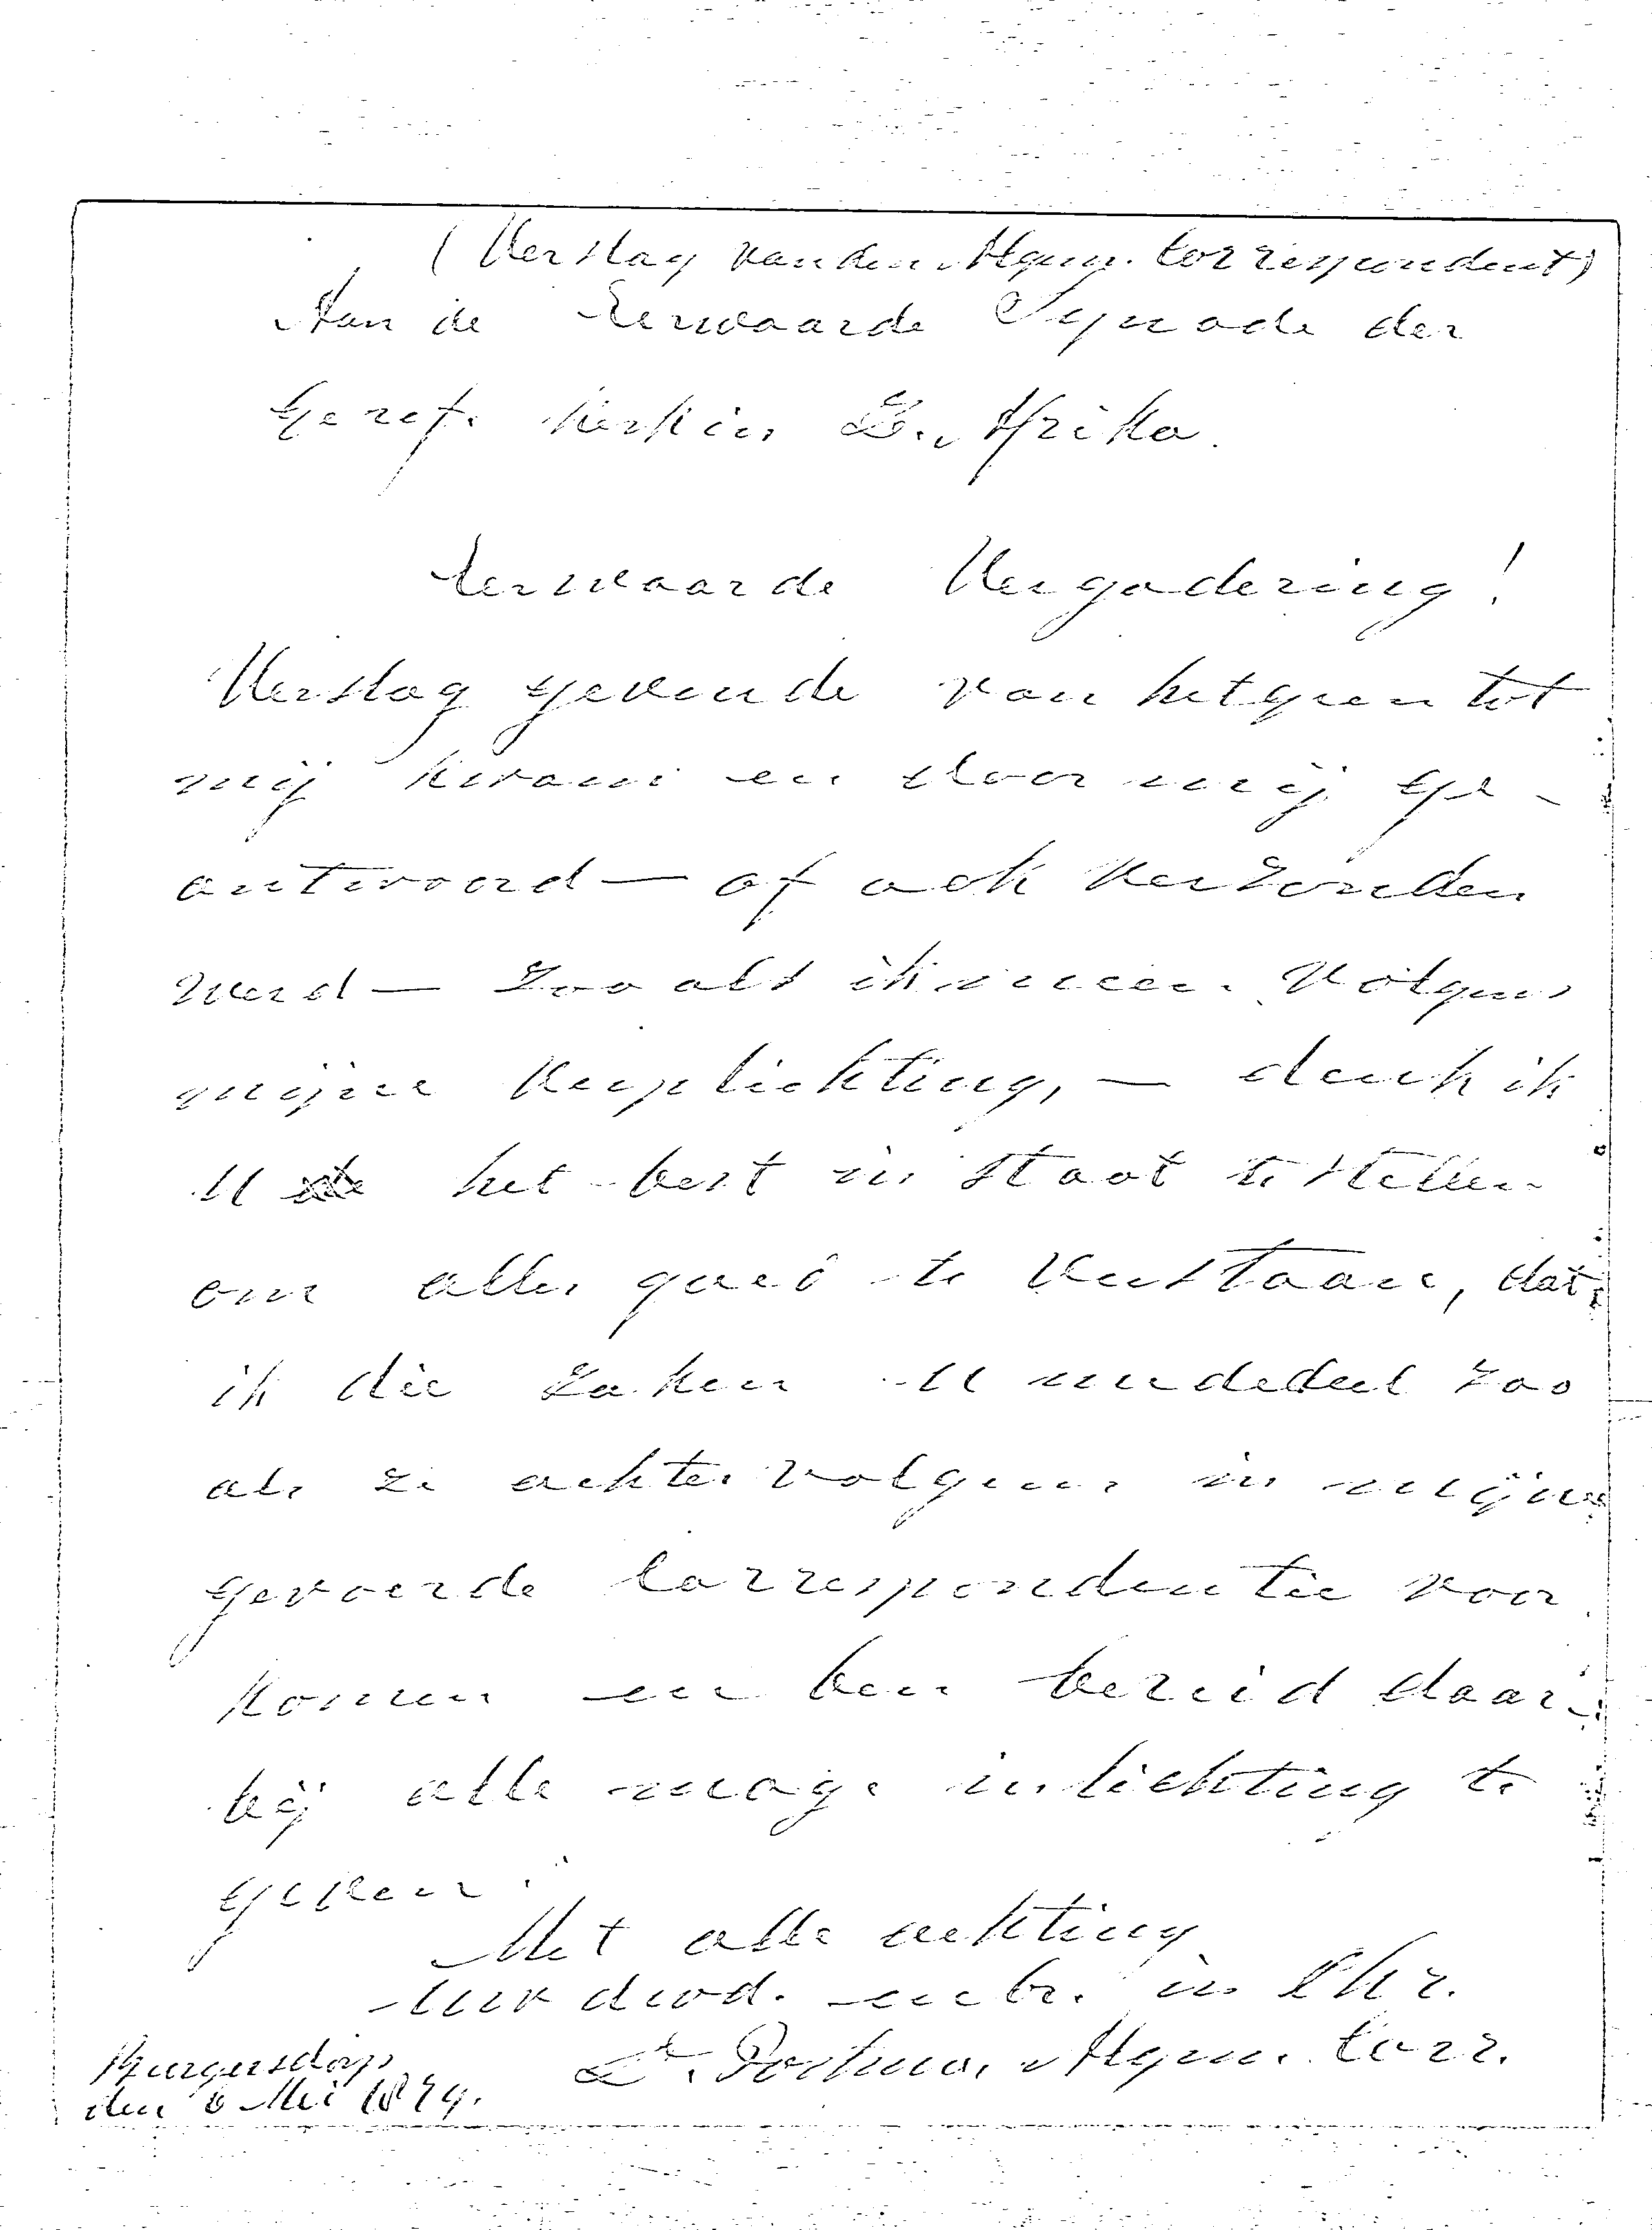 (Verslag van den Algem. Correspondent)
Aan de Eerwaarde Synode der
Geref. Kerk in Z. Afrika.
Eerwaarde Vergadering!
Verslag gevende van hetgeen tot
mij kwam en door mij ge-
antwoord — of ook verzonden
werd — zoo als ik meen volgens
mijne verplichting, — denk ik
U het best in staat te stellen
om alles goed te verstaan, dat
ik die zaken U mededeel zoo
als ze achtervolgens in mijne
gevoerde Correspondentie voor
komen en ben bereid daar-
bij alle moge inlichting te
geven.
Met alle achting
Uw dwd. en br. in Chr.
L. Postma, Algem. Corr.
Burgersdorp
den 6 Mei 1879.